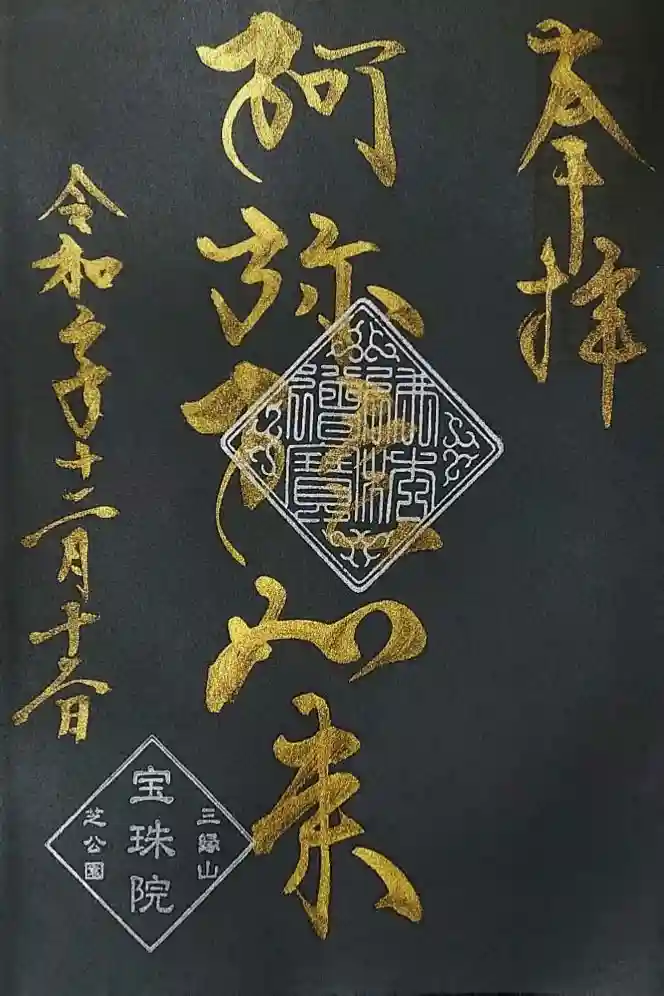 奉拝
阿弥陀如来
佛法僧寶
令和年十二月十日
三縁山
宝珠院
芝公園